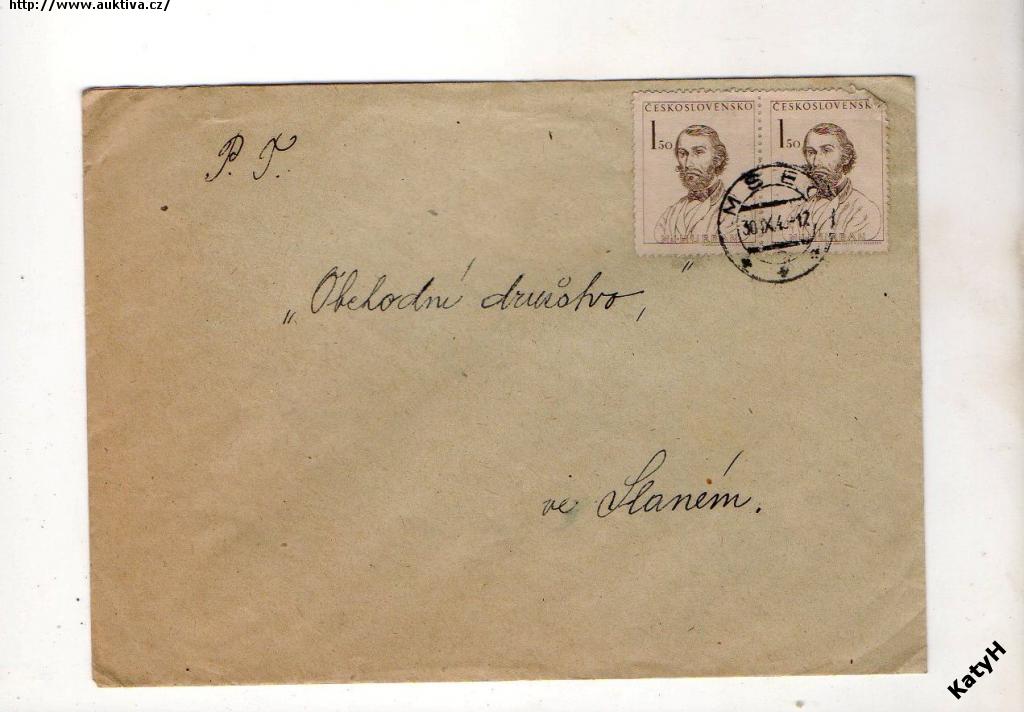 http://www.auktiva.cz/
P. T.
ČESKOSLOVENSKO ČESKOSLOVENSK
1 50 1 50
MŠEC
30.IX.4 -12
HURBAN HURBAN
„Obchodní družstvo,"
ve Slaném.
KatyH